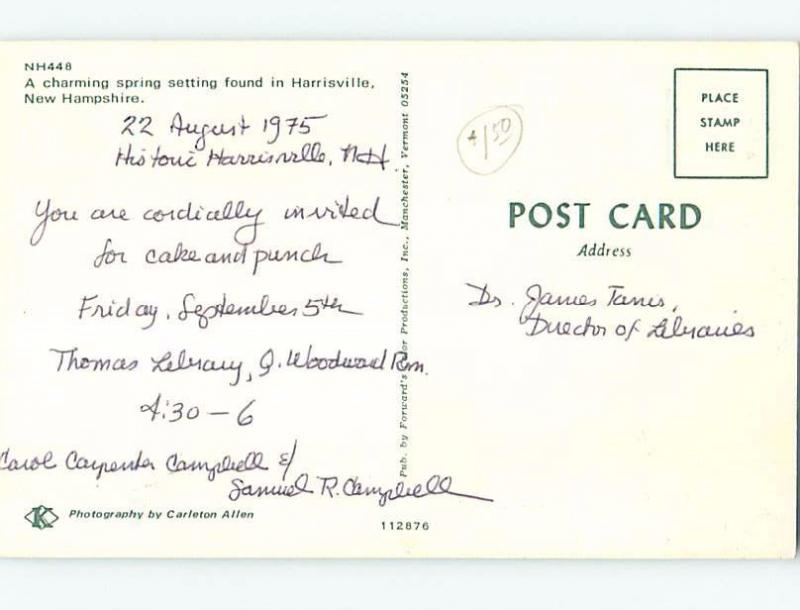 NH448
A charming spring setting found in Harrisville,
New Hampshire.
22 August 1975
Historic Harrisville, NH.
You are cordially invited
for cake and punch
Friday, September 5th
Thomas Library, Q. Woodward Rm.
4:30 – 6
Carol Carpenter Campbell &
Samuel R. Campbell
Photography by Carleton Allen
Pub. by Forward's Color Productions, Inc., Manchester, Vermont 05254
112876
1.50
PLACE
STAMP
HERE
POST CARD
Address
Dr. James Tanis,
Director of Libraries